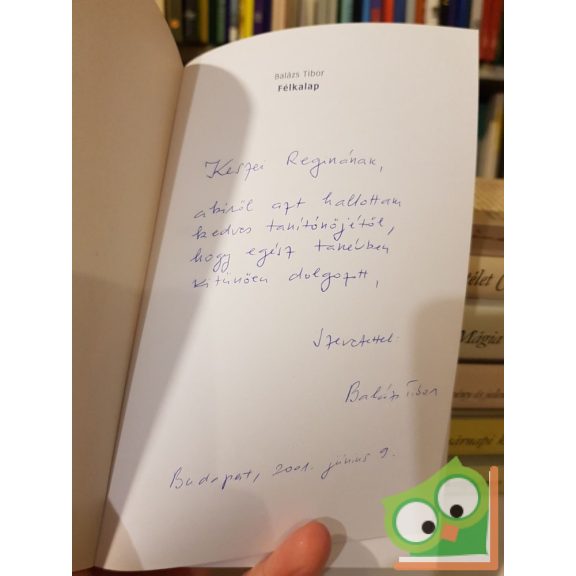 Balázs Tibor
Félkalap
Keszei Reginának,
akiről azt hallottam
kedves tanítónőjétől,
hogy egész tanévben
kitünően dolgozott,
Szeretettel:
Balázs Tibor
Budapest, 2001. június 9.
télet
Mágia